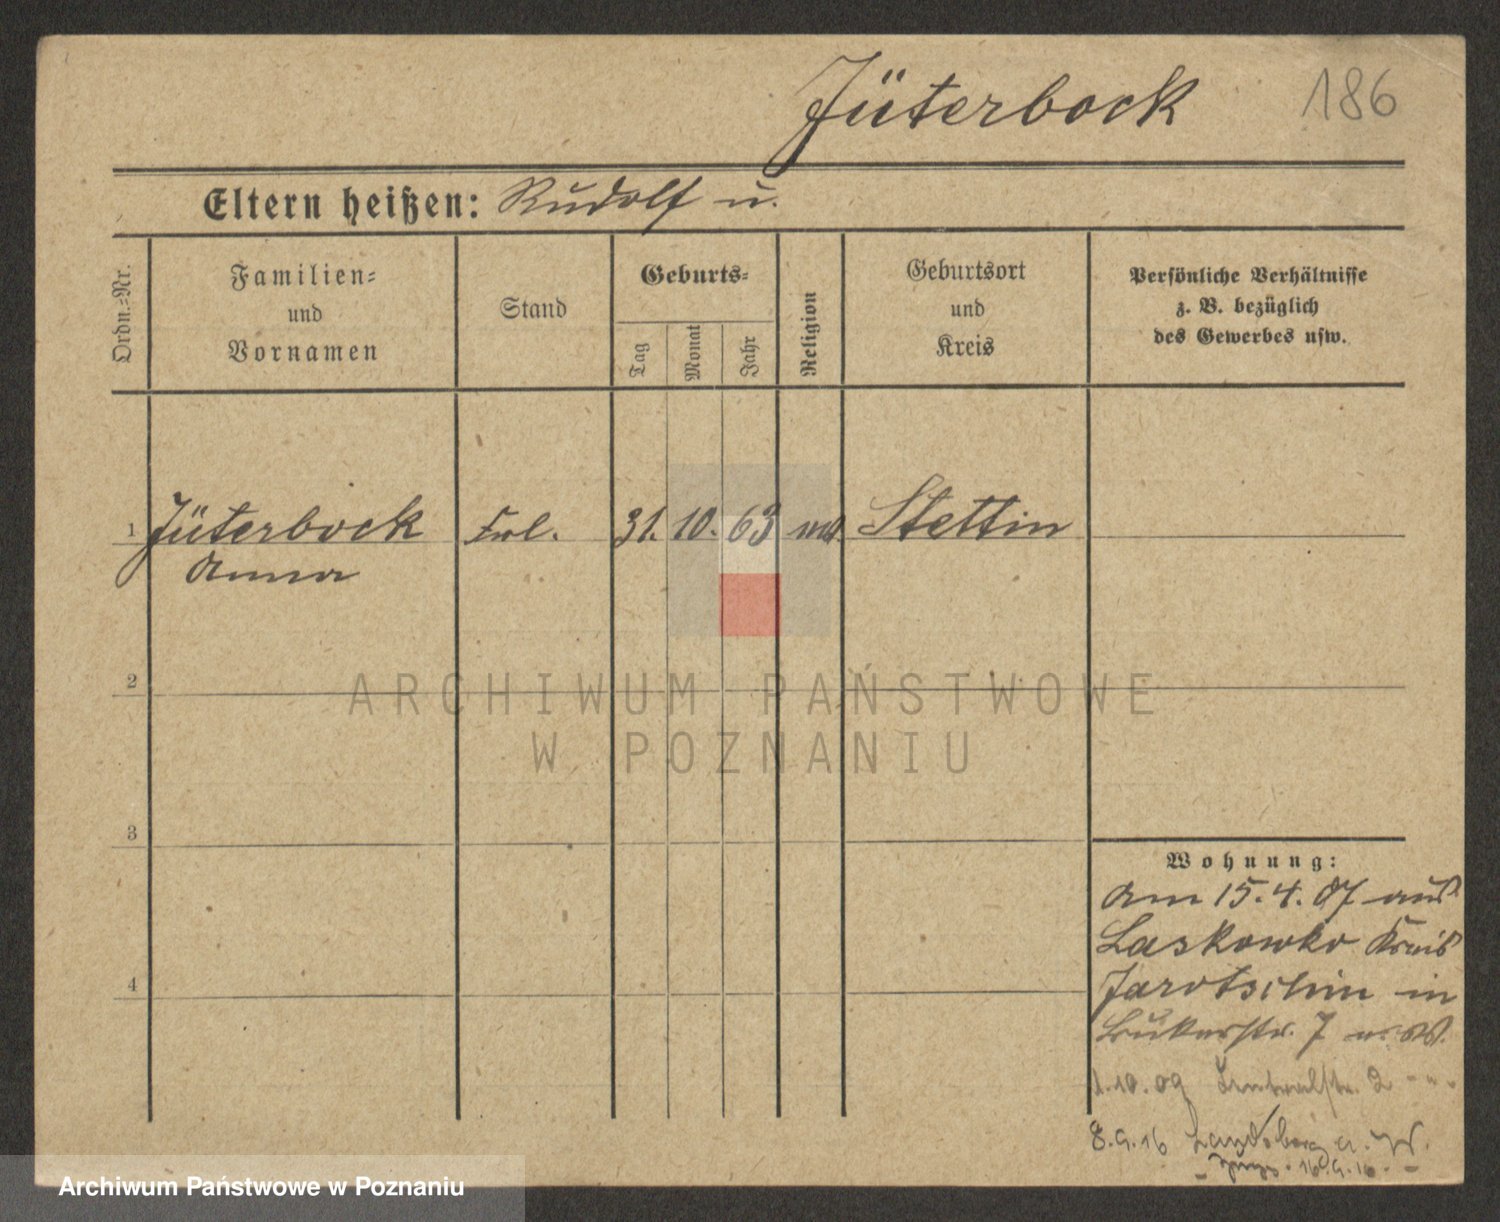 Jüterbock 186
Eltern heißen: Rudolf u.
Ordn.-Nr.
Familien- und Vornamen
Stand
Geburts-
Tag
Monat
Jahr
Religion
Geburtsort und Kreis
Persönliche Verhältnisse
z. B. bezüglich
des Gewerbes usw.
1 Jüterbock Frl. 31. 10. 63 Stettin
Anna
2
ARCHIWUM PAŃSTWOWE
W POZNANIU
3
4
Wohnung:
Am 15.4.07 aus
Laskowko Kreis
Jarotschin in
7
1.10.09 2
8.9.16 Landsberg a. W.
16.9.16.
Archiwum Państwowe w Poznaniu